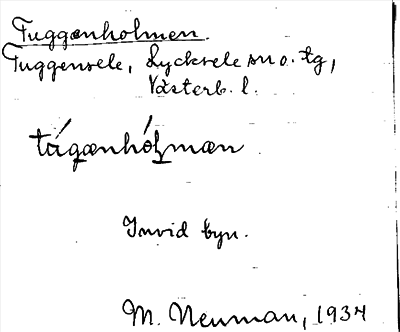 Tuggenholmen.
Tuggensele, Lycksele sn o. tg,
Västerb. l.
tágænhólmæn
Invid byn.
M. Neuman, 1934